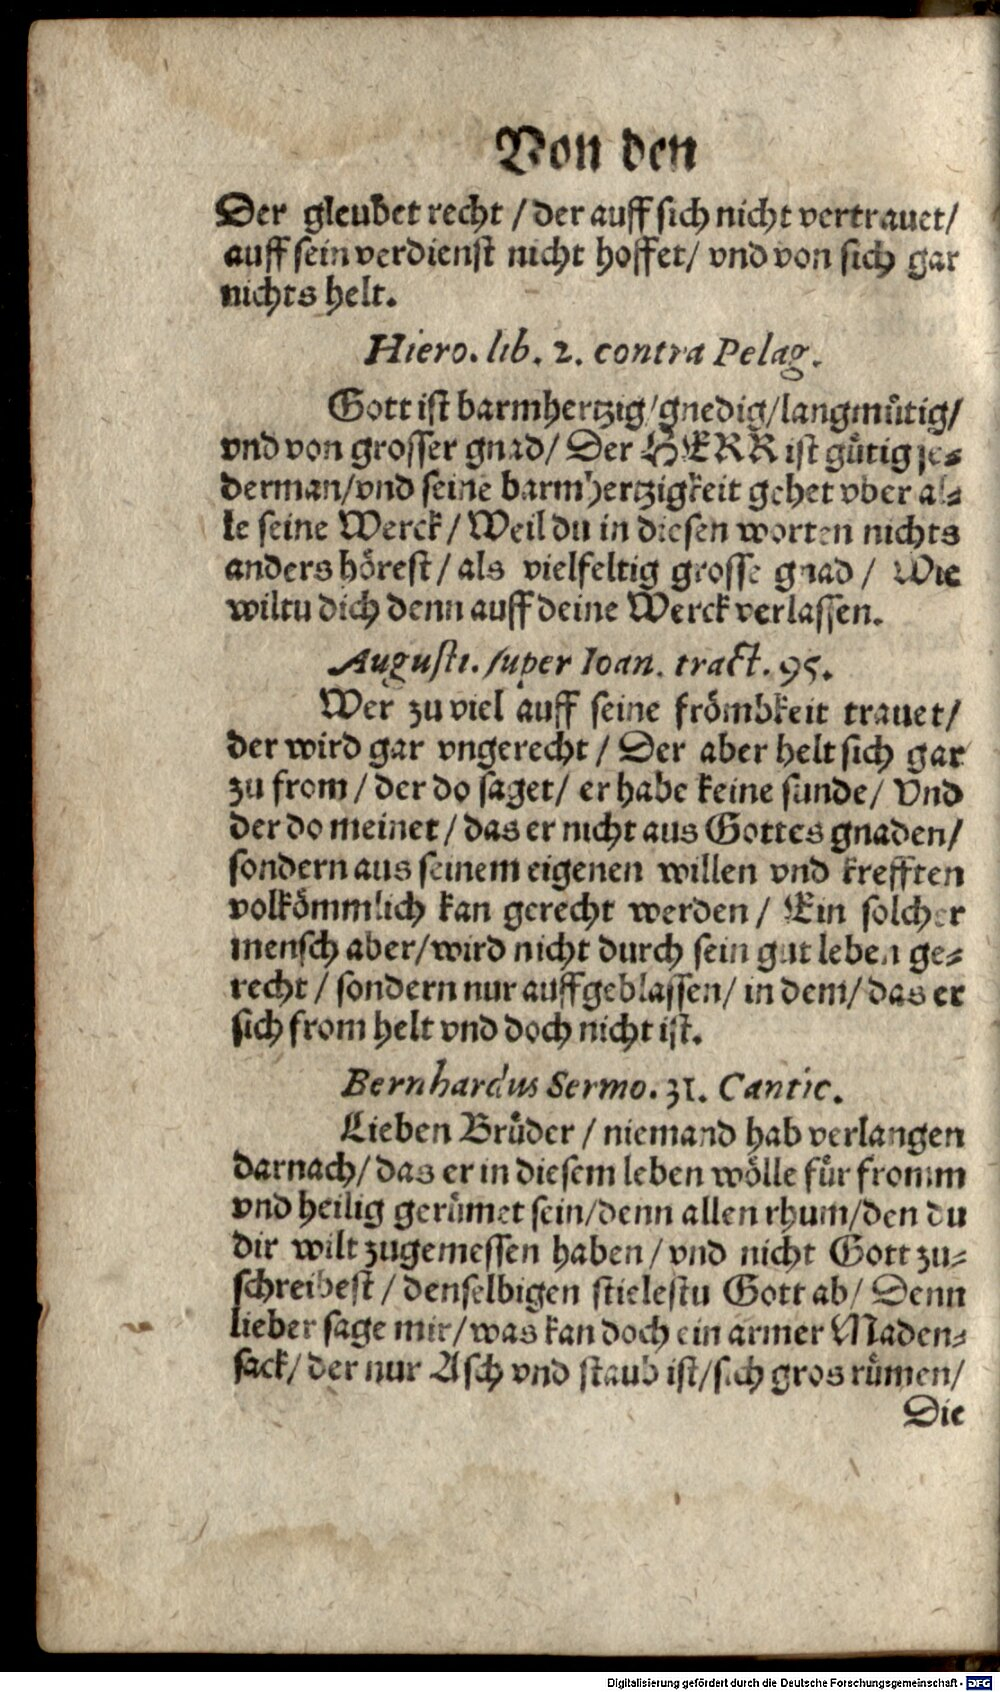 Von den
Der gleubet recht / der auff sich nicht vertrauet/
auff sein verdienst nicht hoffet/ vnd von sich gar
nichts helt.
Hiero. lib. 2. contra Pelag.
Gott ist barmhertzig/gnedig/langmütig/
vnd von grosser gnad/ Der HERR ist gütig je⸗
derman/vnd seine barmhertzigkeit gehet vber al⸗
le seine Werck / Weil du in diesen worten nichts
anders hörest / als vielfeltig grosse gnad / Wie
wiltu dich denn auff deine Werck verlassen.
Augusti. super Ioan. tract. 95.
Wer zu viel auff seine frömbkeit trauet/
der wird gar vngerecht / Der aber helt sich gar
zu from / der do saget/ er habe keine sunde/ Vnd
der do meinet / das er nicht aus Gottes gnaden/
sondern aus seinem eigenen willen vnd krefften
volkömmlich kan gerecht werden / Ein solcher
mensch aber/wird nicht durch sein gut leben ge⸗
recht / sondern nur auffgeblassen/ in dem/ das er
sich from helt vnd doch nicht ist.
Bernhardus Sermo. 31. Cantic.
Lieben Brüder / niemand hab verlangen
darnach/ das er in diesem leben wölle für fromm
vnd heilig gerümet sein/denn allen rhum/den du
dir wilt zugemessen haben / vnd nicht Gott zu⸗
schreibest / denselbigen stielestu Gott ab/ Denn
lieber sage mir/ was kan doch ein armer Maden⸗
sack/ der nur Asch vnd staub ist/sich gros rümen/
Die
Digitalisierung gefördert durch die Deutsche Forschungsgemeinschaft - DFG